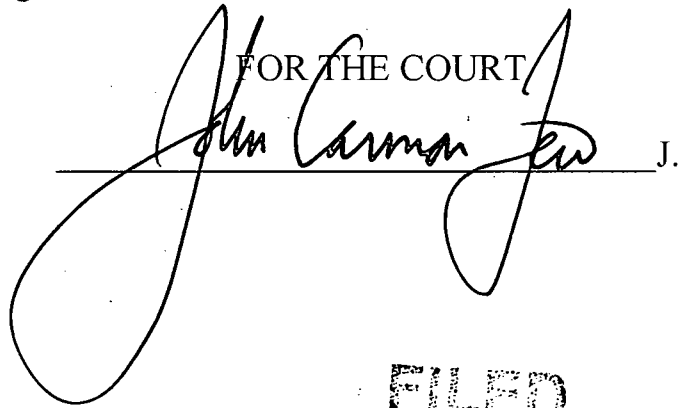 FOR THE COURT
John Cannon Few J.
FILED